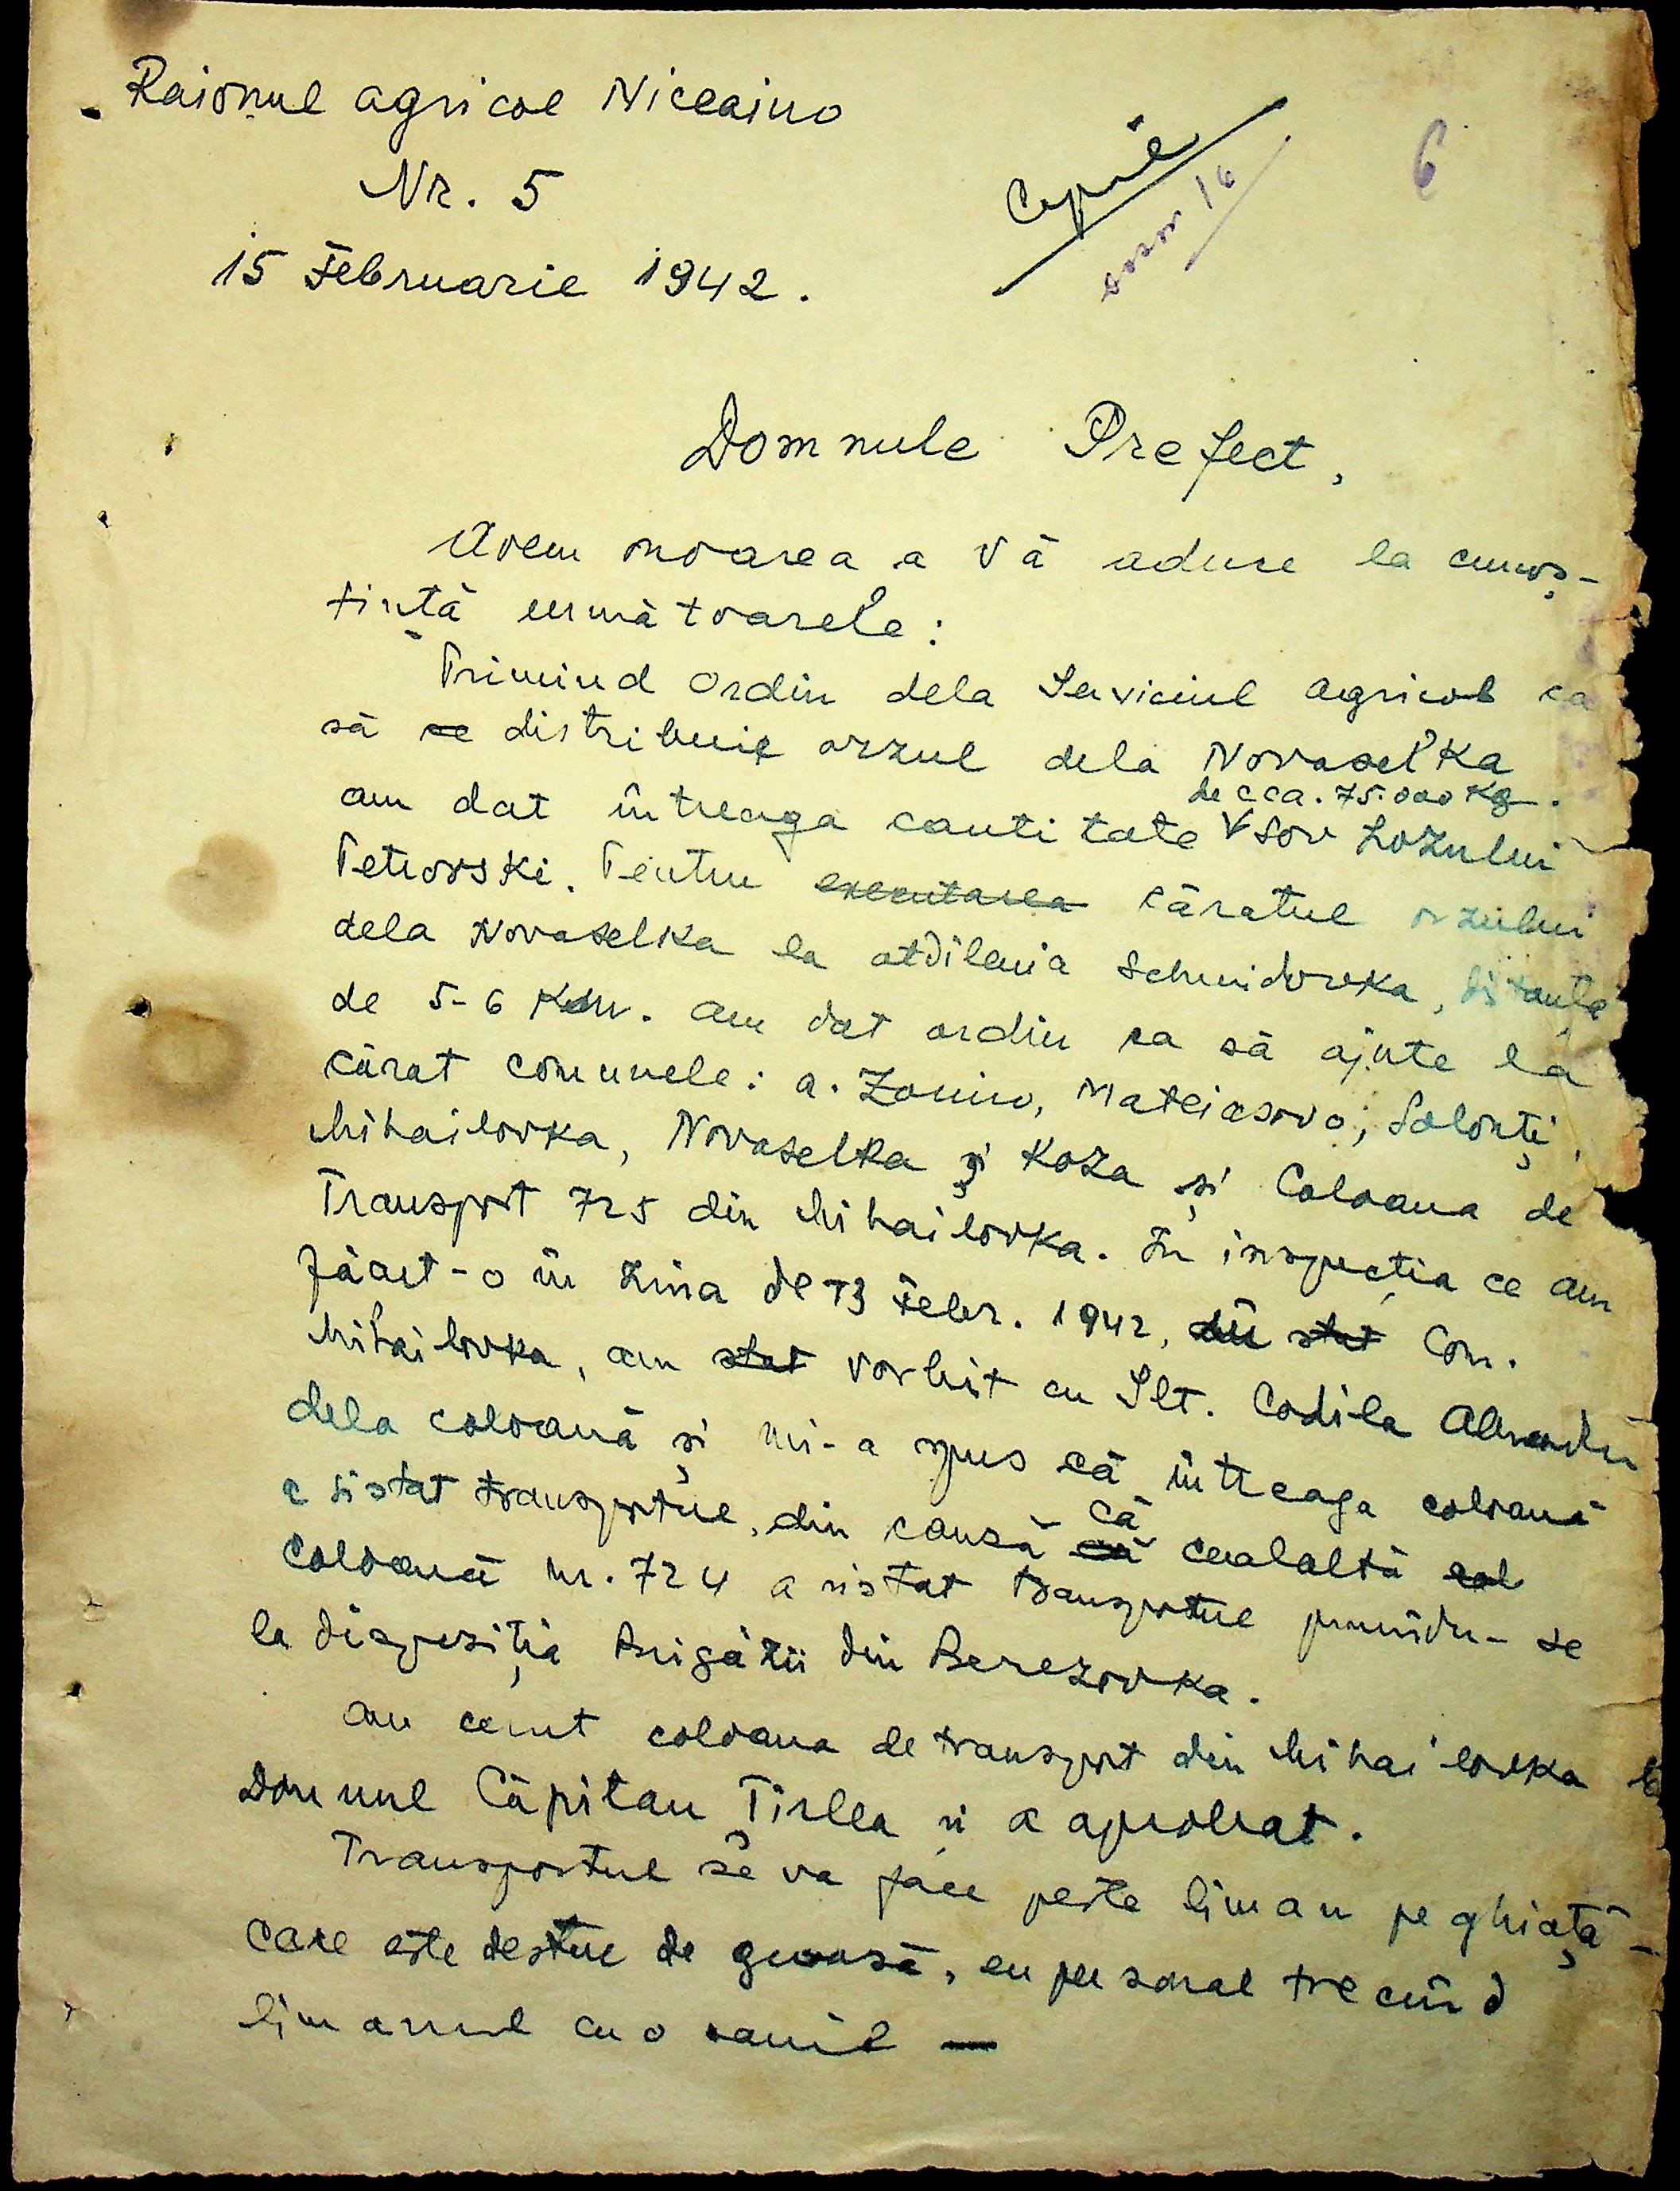 Raionul agricol Niceaino
Nr. 5
15 Februarie 1942.
Copie
6
Domnule Prefect,
Avem onoarea a Vă aduce la cunoș-
tință următoarele:
Primind ordin dela Serviciul agricol ca
să se distribuie orzul dela Novaselka
de cca. 75.000 Kg.
am dat întreaga cantitate Sovhozului
Petrovski. Pentru executarea căratul orzului
dela Novaselka la otdilenia Schmidovka, distanța
de 5-6 Km. am dat ordin ca să ajute la
cărat comunele: a. Zonino, Mateiasovo, Solonți,
Mihailovka, Novaselka și Koza și Coloana de
Transport 725 din Mihailovka. În inspecția ce am
făcut-o în ziua de 13 Febr. 1942, din stat Com.
Mihailovka, am stat vorbit cu Slt. Codila
dela coloană și mi-a spus că întreaga coloană
a sistat transportul, din cauză că cealaltă col
că
Coloană nr. 724 a sistat transportul punându-se
la dispoziția Brigăzii din Berezovka.
Am cerut coloana de transport din Mihailovka
Domnul Căpitan Tirlea și a aprobat.
Transportul se va face peste liman pe ghiață
care este destul de groasă, eu personal trecând
limanul cu o sanie —